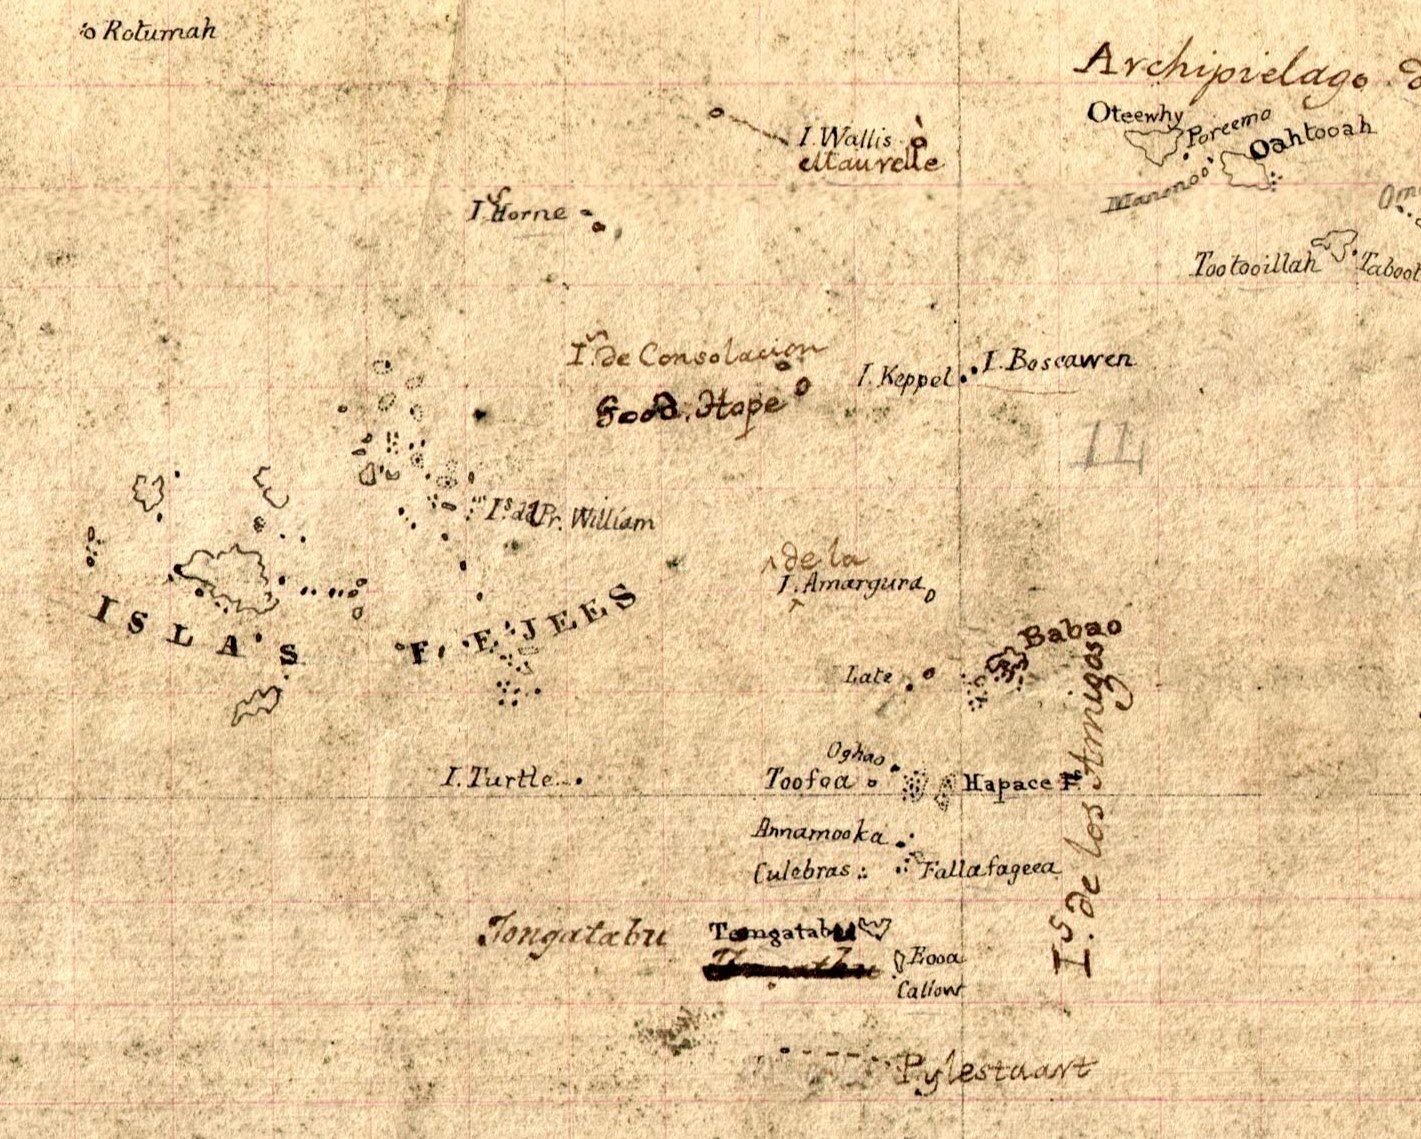 Rotumah
Archipielago
Oteewhy
Poreemo
Oahtooah
Manonoo
I. Wallis
I. Horne
Tootooillah
Taboot
Is. de Consolacion
Good. Hope
I. Keppel
I. Boscawen
14
Is. del Pr. William
de la
I. Amargura
ISLAS FEJEES
Babao
Late
Is. de los Amigos
Oghao
I. Turtle
Toofoa
Hapace Is
Annamooka
Culebras
Fallafageea
Tongatabu
Tongatabu
Eooa
Caliow
Pylestaart